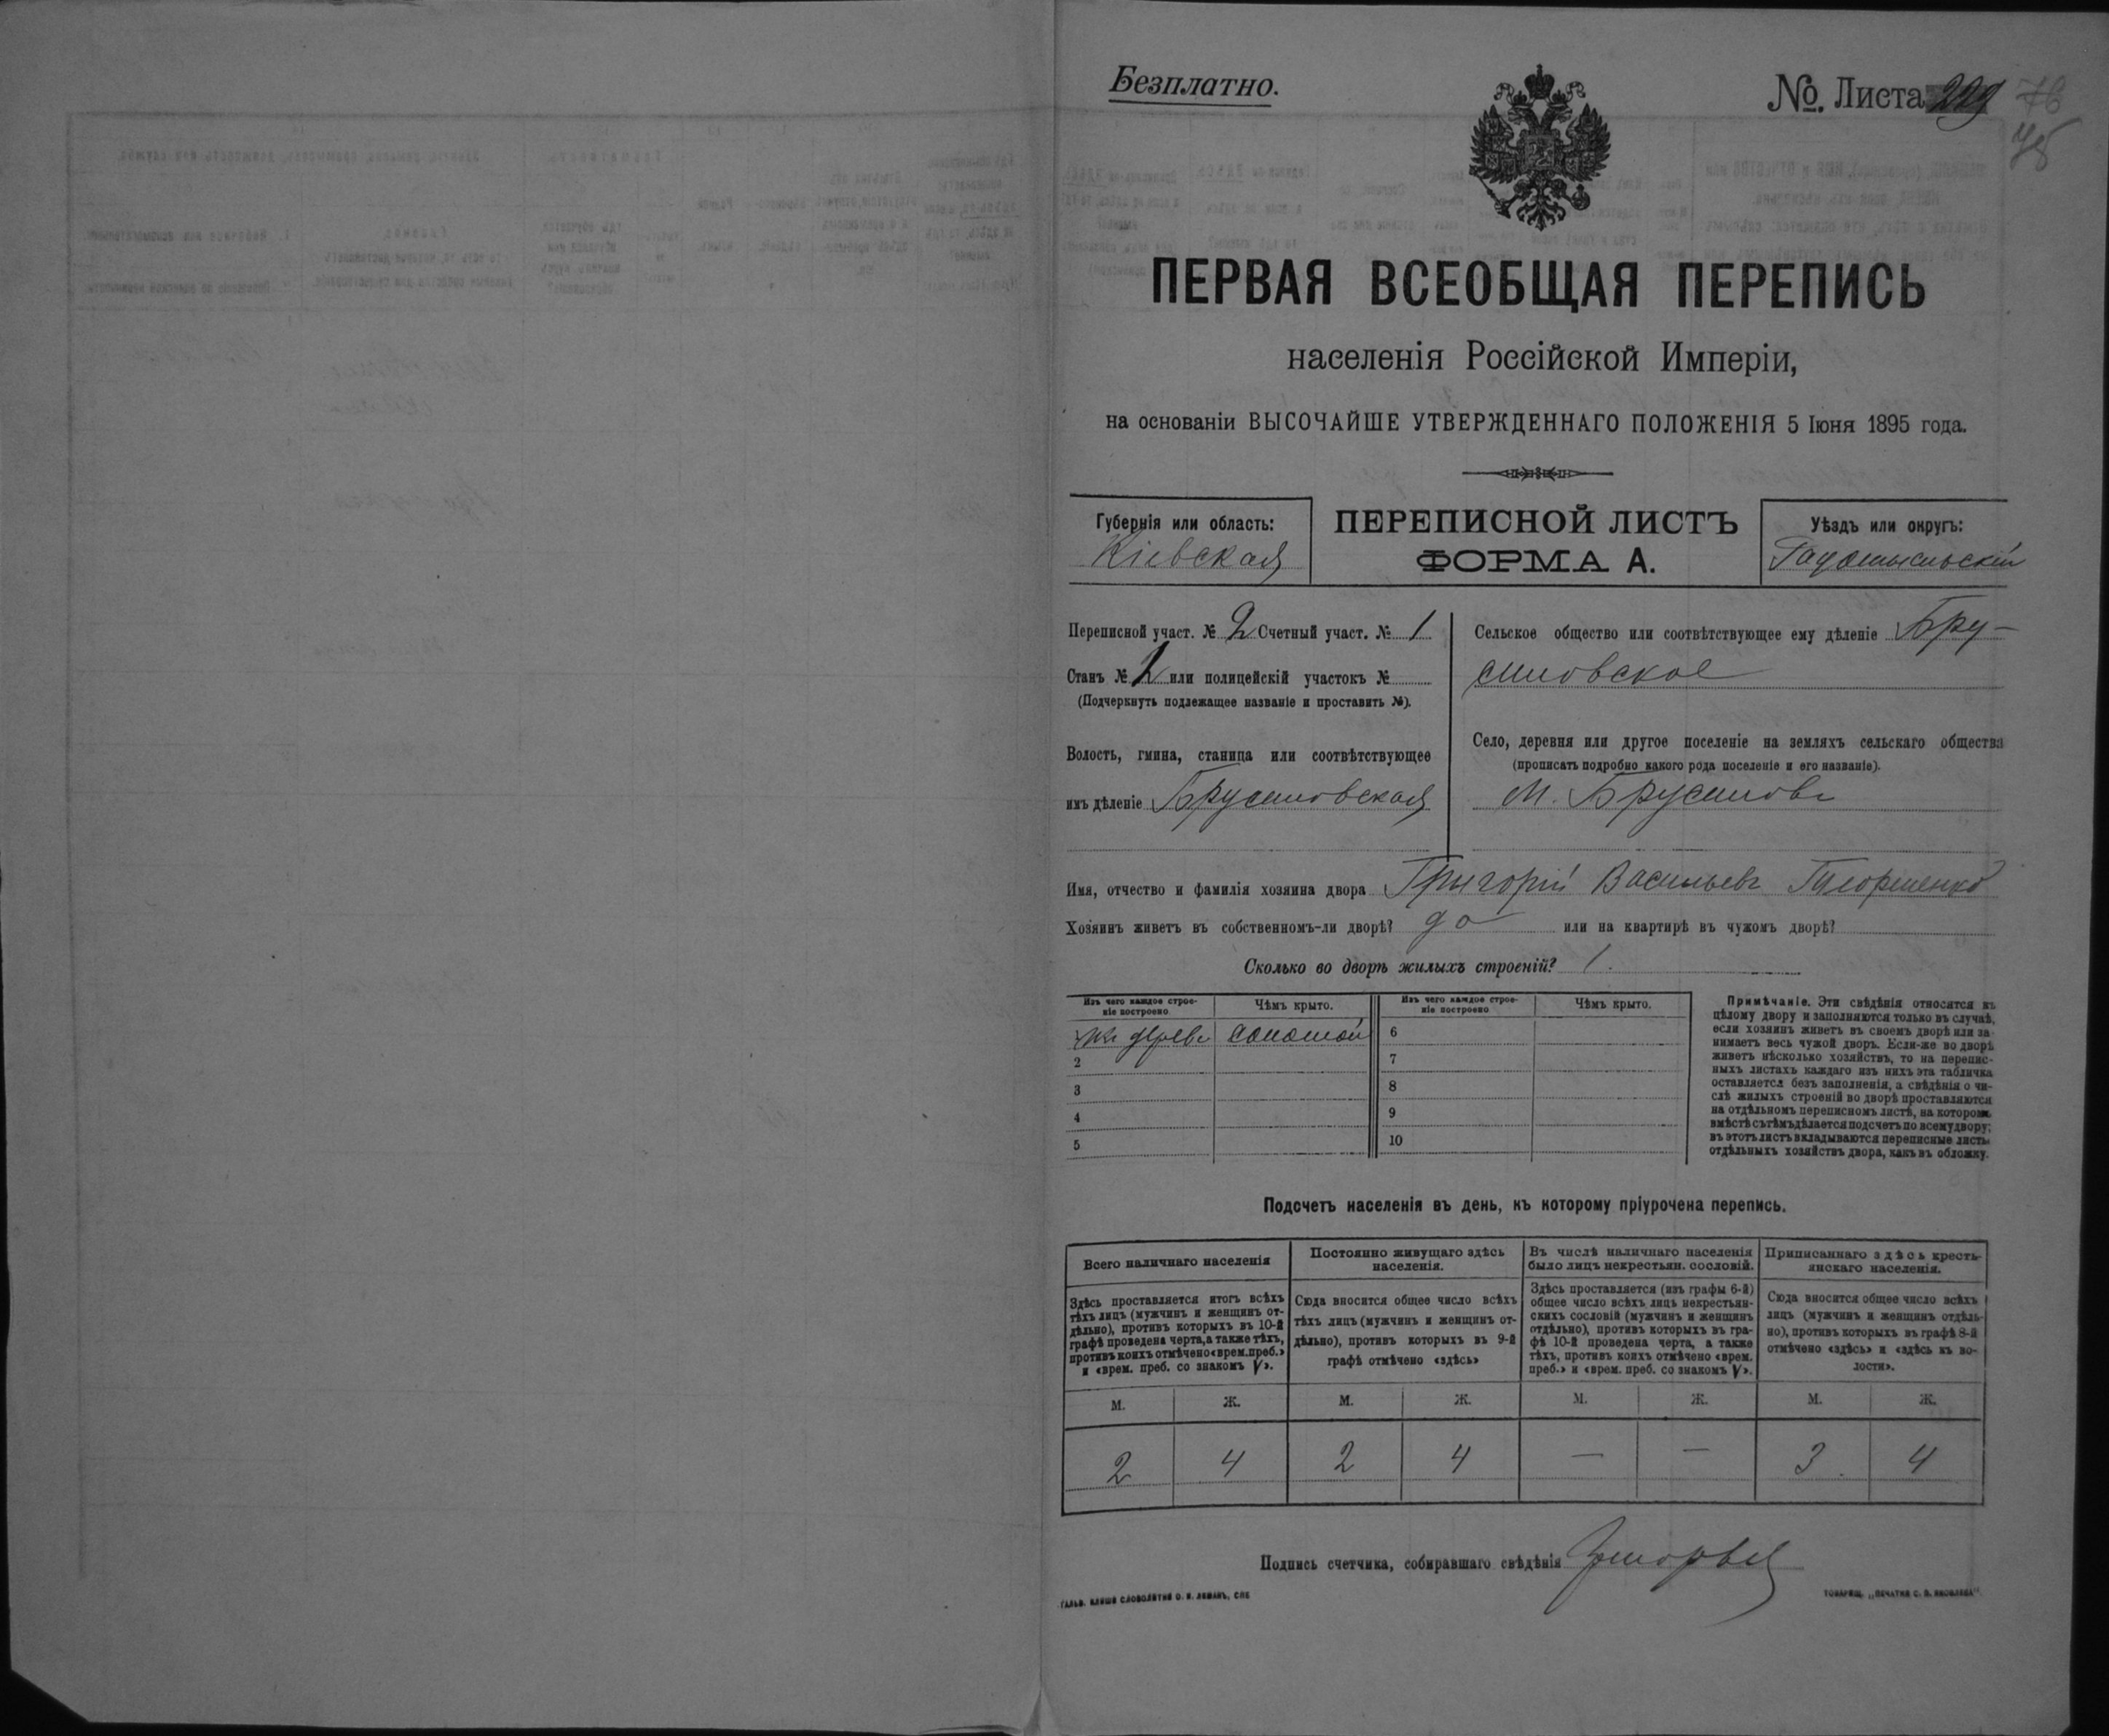 Безплатно.
№. Листа 229
ПЕРВАЯ ВСЕОБЩАЯ ПЕРЕПИСЬ
населенія Россійской Имперіи,
на основаніи ВЫСОЧАЙШЕ УТВЕРЖДЕННАГО ПОЛОЖЕНІЯ 5 Іюня 1895 года.
Губернія или область:
Кіевская
ПЕРЕПИСНОЙ ЛИСТЪ
ФОРМА А.
Уѣздъ или округъ:
Радомысльскій
Переписной участ. № 2 Счетный участ. № 1
Станъ № 2 или полицейскій участокъ №
(Подчеркнуть подлежащее названіе и проставить №).
Волость, гмина, станица или соотвѣтствующее
имъ дѣленіе Брусиловская
Сельское общество или соотвѣтствующее ему дѣленіе Бру-
силовское
Село, деревня или другое поселеніе на земляхъ сельскаго общества
(прописать подробно какого рода поселеніе и его названіе).
М. Брусиловъ
Имя, отчество и фамилія хозяина двора Григорій Васильевъ
Хозяинъ живетъ въ собственномъ-ли дворѣ? да или на квартирѣ въ чужомъ дворѣ?
Сколько во дворѣ жилыхъ строеній? 1.
Изъ чего каждое строе-
ніе построено
Чѣмъ крыто.
Изъ чего каждое строе-
ніе построено
Чѣмъ крыто.
изъ дерева соломой 6
2 7
3 8
4 9
5 10
Примѣчаніе. Эти свѣдѣнія относятся къ
цѣлому двору и заполняются только въ случаѣ,
если хозяинъ живетъ въ своемъ дворѣ или за-
нимаетъ весь чужой дворъ. Если-же во дворѣ
живетъ нѣсколько хозяйствъ, то на перепис-
ныхъ листахъ каждаго изъ нихъ эта табличка
оставляется безъ заполненія, а свѣдѣнія о чи-
слѣ жилыхъ строеній во дворѣ проставляются
на отдѣльномъ переписномъ листѣ, на которомъ
вмѣстѣ съ тѣмъ дѣлается подсчетъ по всему двору;
въ этотъ листъ вкладываются переписные листы
отдѣльныхъ хозяйствъ двора, какъ въ обложку.
Подсчетъ населенія въ день, къ которому пріурочена перепись.
Всего наличнаго населенія
Здѣсь проставляется итогъ всѣхъ
тѣхъ лицъ (мужчинъ и женщинъ от-
дѣльно), противъ которыхъ въ 10-й
графѣ проведена черта, а также тѣхъ,
противъ коихъ отмѣчено «врем. преб.»
и «врем. преб. со знакомъ V».
Постоянно живущаго здѣсь
населенія.
Сюда вносится общее число всѣхъ
тѣхъ лицъ (мужчинъ и женщинъ от-
дѣльно), противъ которыхъ въ 9-й
графѣ отмѣчено «здѣсь»
Въ числѣ наличнаго населенія
было лицъ некрестьян. сословій.
Здѣсь проставляется (изъ графы 6-й)
общее число всѣхъ лицъ некрестьян-
скихъ сословій (мужчинъ и женщинъ
отдѣльно), противъ которыхъ въ гра-
фѣ 10-й проведена черта, а также
тѣхъ, противъ коихъ отмѣчено «врем.
преб.» и «врем. преб. со знакомъ V».
Приписаннаго здѣсь кресть-
янскаго населенія.
Сюда вносится общее число всѣхъ
лицъ (мужчинъ и женщинъ отдѣль-
но), противъ которыхъ въ графѣ 8-й
отмѣчено «здѣсь» и «здѣсь къ во-
лости».
М. Ж. М. Ж. М. Ж. М. Ж.
2 4 2 4 — — 3. 4
Подпись счетчика, собиравшаго свѣдѣнія
ГАЛЬВ. КЛИШЕ СЛОВОЛИТНИ О. И. ЛЕМАНЪ, СПБ
ТОВАРИЩ. „ПЕЧАТНЯ С. П. ЯКОВЛЕВА“.